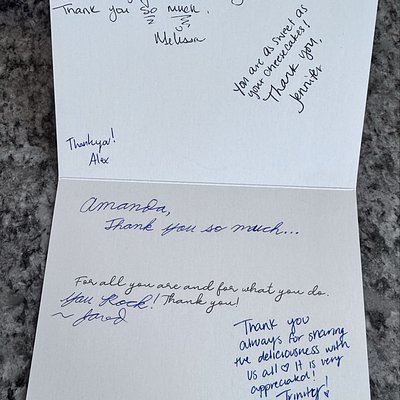 Thank you so much.
Melissa
You are as sweet as
your cheesecakes!
Thank you,
Jennifer
Thankyou!
Alex
Amanda,
Thank you so much...
For all you are and for what you do.
You Rock! Thank you!
~ Jared
Thank you
always for sharing
the deliciousness with
us all ♡ It is very
appreciated!
Trinity!